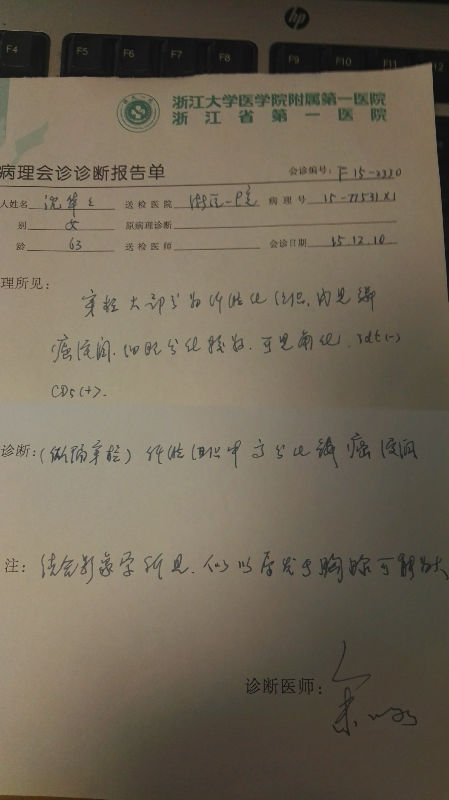 F4 F5 F6 F7 F8 F9 F10 F11
hp
浙江大学医学院附属第一医院
浙江省第一医院
病理会诊诊断报告单
会诊编号: F15-2320
人姓名 沈华 送检医院 浙江一医院 病理号 15-77531X1
别 女 原病理诊断
龄 63 送检医师 会诊日期 15.12.10
理所见:
穿检大部分为纤维化组织,内见鳞
癌浸润,细胞分化较好,可见角化, TdT(-)
CD5(+).
诊断: (纵隔穿检) 纤维组织中高分化鳞癌浸润
注: 结合影象学所见,仍以原发于胸腺可能为大
诊断医师: